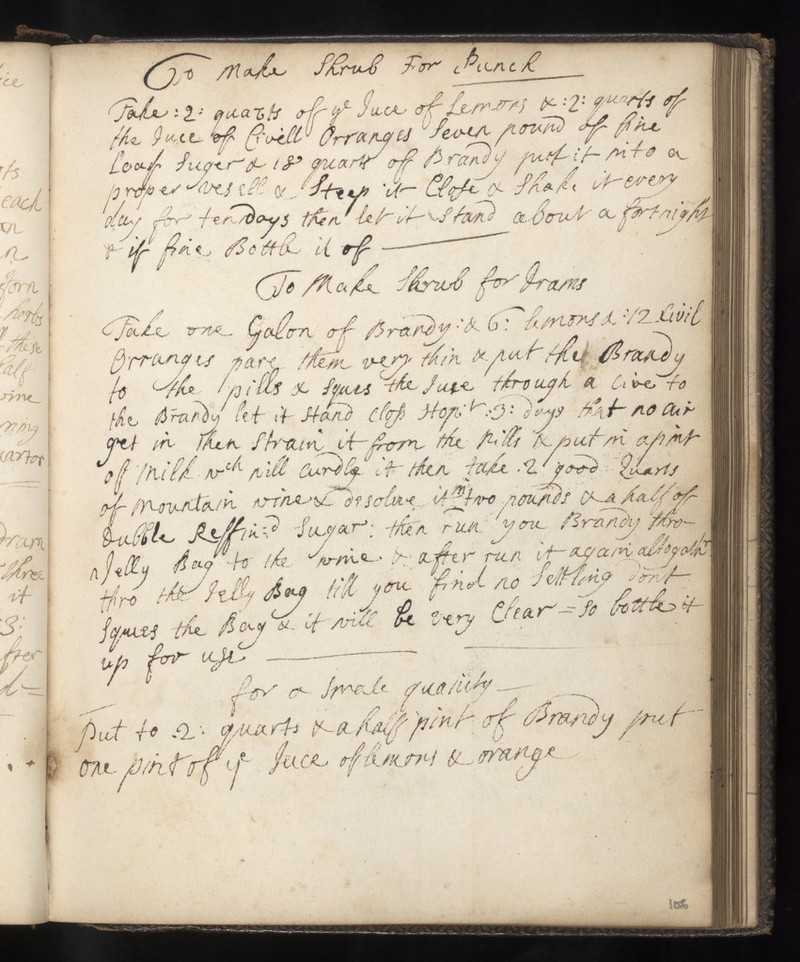 To Make Shrub For Punch
Take :2: quarts of ye Juce of Lemons & :2: quarts of
the Juce of Civell Orranges Seven pound of fine
Loaf Suger & 18 quarts of Brandy put it into a
proper vesell & Steep it Close & Shake it every
day for ten Days then let it Stand about a fortnight
& if fine Bottle it of
To Make Shrub for Drams
Take one Galon of Brandy: & 6: lemons & :12 Civil
Orranges pare them very thin & put the Brandy
to the pills & Sques the Juce through a Cive to
the Brandy let it Stand Clos Stopt :3: days that no air
get in Then Strain it from the Pills & put in a pint
off Milk wch will Curdle it then take :2 good Quarts
of Mountain wine & desolve in it two pounds & a half of
Dubble Reffin:d Sugar: then run you Brandy thro
a Jelly Bag to the wine & after run it again altogathr
thro the Jelly Bag till you find no Settling Dont
Sques the Bag & it will be very Clear = So bottle it
up for use
for a Smale quanity
Put to :2: quarts & a half pint of Brandy put
one pint of ye Juce of lemons & orange
106
ice
each
on
forn
horbs
these
half
wine
quartor
dram
three
it
3:
after